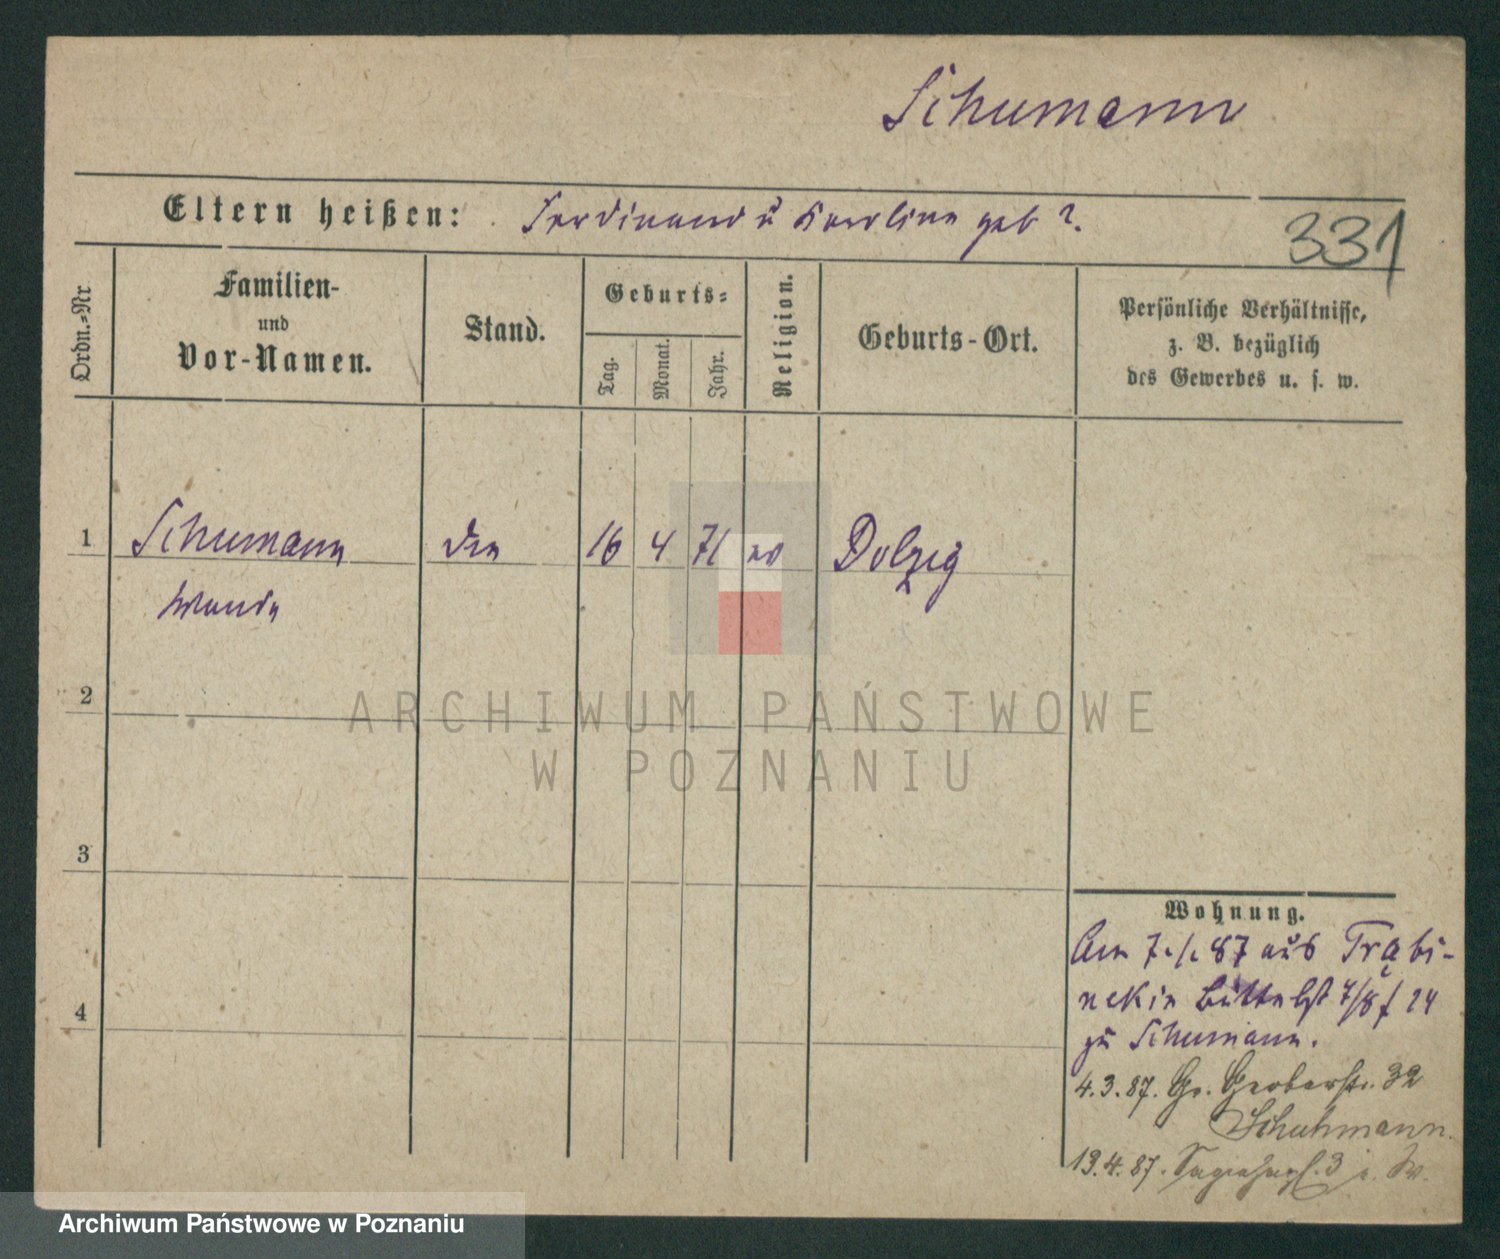 Schumann
Eltern heißen: Ferdinand u Karoline geb ?.
331
Ordn.-Nr
Familien-
und
Vor-Namen.
Stand.
Geburts-
Tag.
Monat.
Jahr.
Religion.
Geburts-Ort.
Persönliche Verhältnisse,
z. B. bezüglich
des Gewerbes u. s. w.
1 Schumann 16 4 71 Dolzig
Wanda
2
3
4
Wohnung.
Am 7./1. 87 aus Trąbi-
nek in Büttelst 7/8 f 24
zu Schumann.
4.3.87. Gr. Gerberstr. 32
Schuhmann.
13.4.87. 3 i. W.
ARCHIWUM PAŃSTWOWE
W POZNANIU
Archiwum Państwowe w Poznaniu